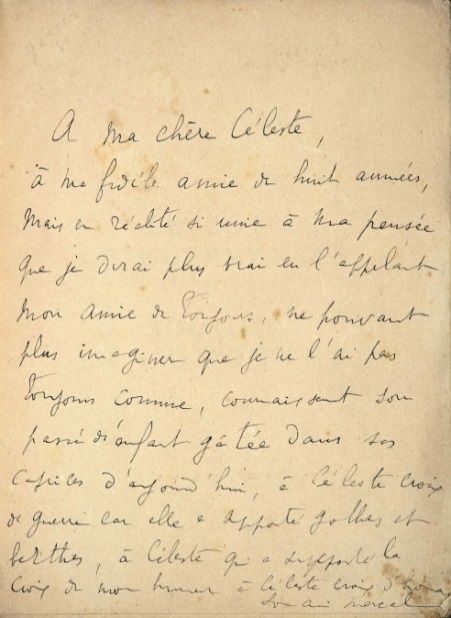 A ma chère Céleste,
à ma fidèle amie de huit années,
mais en réalité si unie à ma pensée
que je dirai plus vrai en l'appelant
mon amie de toujours, ne pouvant
plus imaginer que je ne l'ai pas
toujours connue, connaissant son
passé d'enfant gâtée dans ses
caprices d'aujourd'hui, à Céleste croix
de guerre car elle a supporté gothas et
berthas, à Céleste qui a supporté la
croix de mon humeur à Céleste croix d'honneur
Son ami Marcel